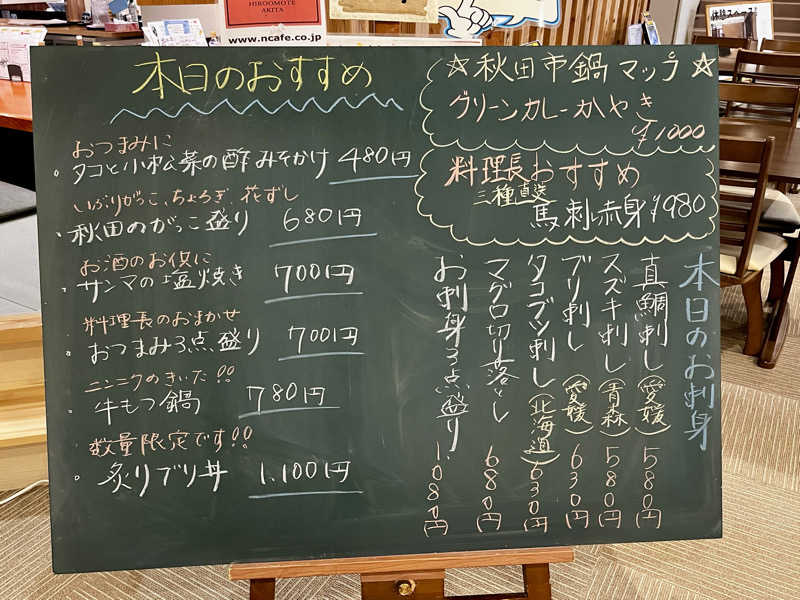 HIROOMOTE
AKITA
www.ncafe.co.jp
本日のおすすめ
おつまみに
・タコと小松菜の酢みそかけ 480円
いぶりがっこ、ちょろぎ、花ずし
・秋田のがっこ盛り 680円
お酒のお供に
・サンマの塩焼き 700円
料理長のおまかせ
・おつまみ3点盛り 700円
ニンニクのきいた!!
・牛もつ鍋 780円
数量限定です!!
・炙りブリ丼 1,100円
☆秋田市鍋マップ☆
グリーンカレーかやき
¥1000
料理長おすすめ
三種直送
馬刺し赤身¥980
本日のお刺身
真鯛刺し(愛媛)580円
スズキ刺し(青森)580円
ブリ刺し(愛媛)630円
タコブツ刺し(北海道)630円
マグロ切り落とし 680円
お刺身3点盛り 1.080円